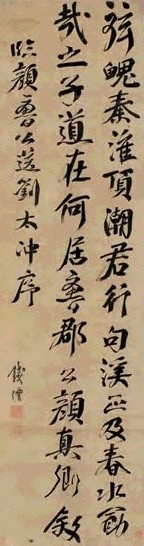 弦魄秦淮頂潮君行句溪正及春水勖
哉之子道在何居魯郡公顏真卿敘
臨顏魯公送劉太冲序
錢灃